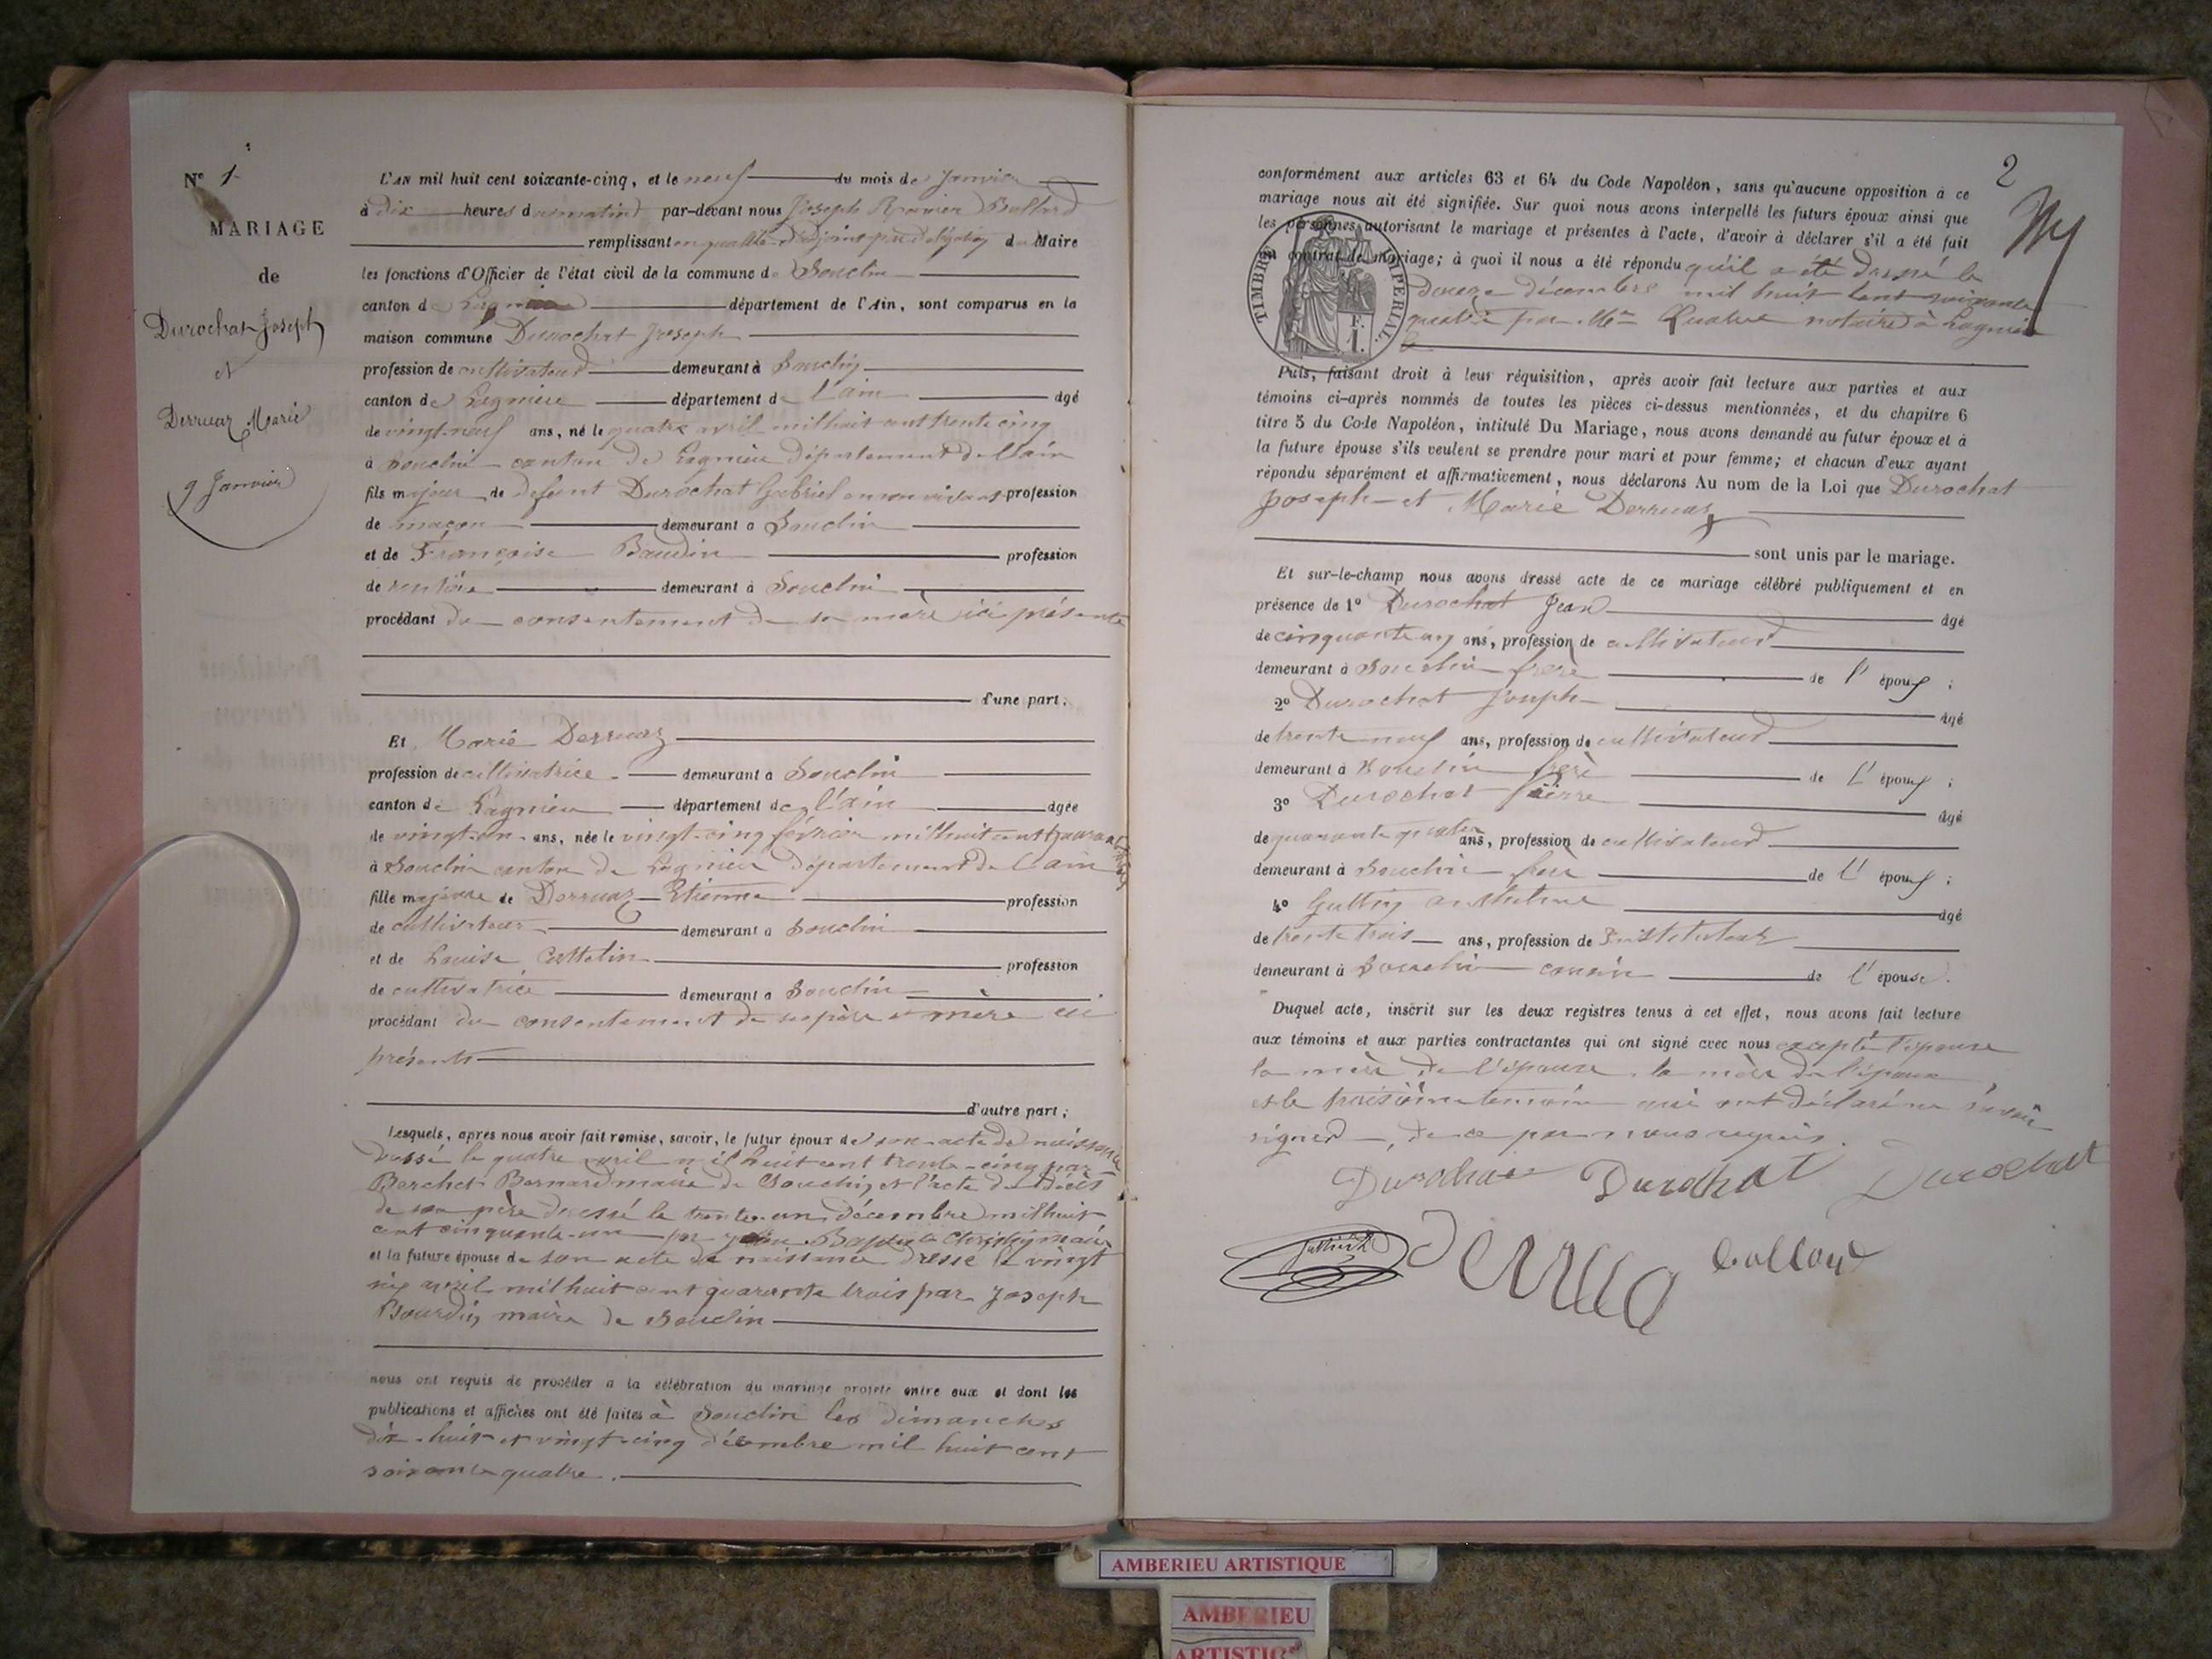 N° 1
MARIAGE
de
Durochat Joseph
et
Derruaz Marie
9 Janvier
L'AN mil huit cent soixante-cinq, et le neuf du mois de Janvier
à dix heures du matin par-devant nous Joseph
remplissant en qualité d'adjoint par délégation du Maire
les fonctions d'Officier de l'état civil de la commune de Souclin
canton de Lagnieu département de l'Ain, sont comparus en la
maison commune Durochat Joseph
profession de cultivateur demeurant à Souclin
canton de Lagnieu département de l'ain âgé
de vingt-neuf ans, né le quatre avril mil huit cent trente cinq
à Souclin canton de Lagnieu département de l'ain
fils majeur de defunt Durochat Gabriel en son vivant profession
de maçon demeurant à Souclin
et de Françoise Baudin profession
de rentière demeurant à Souclin
procédant du consentement de sa mère ici présente
d'une part;
Et Marie Derruaz
profession de cultivatrice demeurant à Souclin
canton de Lagnieu département de l'ain âgée
de vingt-un ans, née le vingt-cinq février mil huit cent quarante
à Souclin canton de Lagnieu département de l'ain
fille majeure de Derruaz Etienne profession
de cultivateur demeurant à Souclin
et de Louise Cattelin profession
de cultivatrice demeurant à Souclin
procédant du consentement de ses père et mère ici
présents
d'autre part;
Lesquels, après nous avoir fait remise, savoir, le futur époux de son acte de naissance
dressé le quatre avril mil huit cent trente-cinq par
Berchet Bernard maire de Souclin, et l'acte de décès
de son père dressé le trente-un décembre mil huit
cent cinquante-un par
et la future épouse de son acte de naissance dressé le vingt
six avril mil huit cent quarante trois par Joseph
Bourdin maire de Souclin
nous ont requis de procéder à la célébration du mariage projeté entre eux et dont les
publications et affiches ont été faites à Souclin les dimanches
dix-huit et vingt-cinq décembre mil huit cent
soixante quatre.
2
conformément aux articles 63 et 64 du Code Napoléon, sans qu'aucune opposition à ce
mariage nous ait été signifiée. Sur quoi nous avons interpellé les futurs époux ainsi que
les personnes autorisant le mariage et présentes à l'acte, d'avoir à déclarer s'il a été fait
un contrat de mariage; à quoi il nous a été répondu qu'il a été dressé le
douze décembre mil huit cent soixante
quatre par Me Quatre notaire à Lagnieu
TIMBRE IMPERIAL
F. 1.
Puis, faisant droit à leur réquisition, après avoir fait lecture aux parties et aux
témoins ci-après nommés de toutes les pièces ci-dessus mentionnées, et du chapitre 6
titre 5 du Code Napoléon, intitulé Du Mariage, nous avons demandé au futur époux et à
la future épouse s'ils veulent se prendre pour mari et pour femme; et chacun d'eux ayant
répondu séparément et affirmativement, nous déclarons Au nom de la Loi que Durochat
Joseph et Marie Derruaz
sont unis par le mariage.
Et sur-le-champ nous avons dressé acte de ce mariage célébré publiquement et en
présence de 1° Durochat Jean âgé
de cinquante ans, profession de cultivateur
demeurant à Souclin frère de l'époux;
2° Durochat Joseph âgé
de trente neuf ans, profession de cultivateur
demeurant à Souclin frère de l'époux;
3° Durochat Pierre âgé
de quarante quatre ans, profession de cultivateur
demeurant à Souclin frère de l'époux;
4° Guttin anthelme âgé
de trente trois ans, profession de Instituteur
demeurant à Souclin cousin de l'épouse.
Duquel acte, inscrit sur les deux registres tenus à cet effet, nous avons fait lecture
aux témoins et aux parties contractantes qui ont signé avec nous excepté l'épouse
la mère de l'épouse, la mère de l'époux
et le troisième témoin qui ont déclaré ne savoir
signer, de ce par nous requis.
Durochat Durochat Durochat
AMBERIEU ARTISTIQUE
AMBERIEU
ARTISTIQ